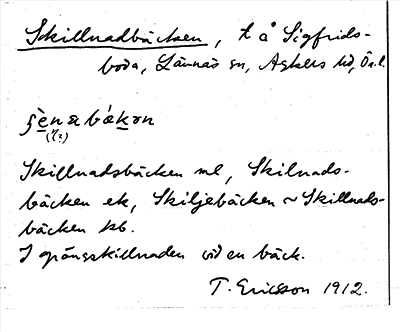 Skillnadbäcken, t å Sigfrids-
boda, Lännäs sn, Askers hd, Ör.l.
(?)
Skillnadsbäcken ml, Skilnads-
bäcken ek, Skiljebäcken ~ Skillnads-
bäcken kb.
I gränsskillnaden vid en bäck.
T. Ericsson 1912.